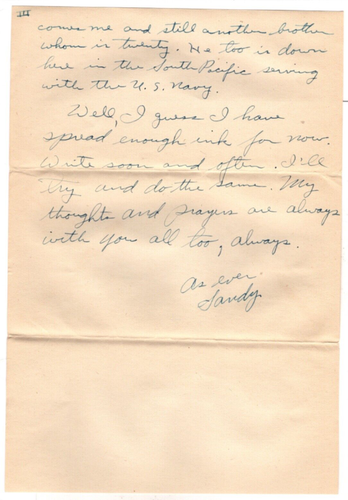 III
comes me and still another brother
whom is twenty. He too is down
here in the South Pacific serving
with the U.S. Navy.
Well, I guess I have
spread enough ink for now.
Write soon and often. I'll
try and do the same. My
thoughts and prayers are always
with you all too, always.
As ever.
Sandy.